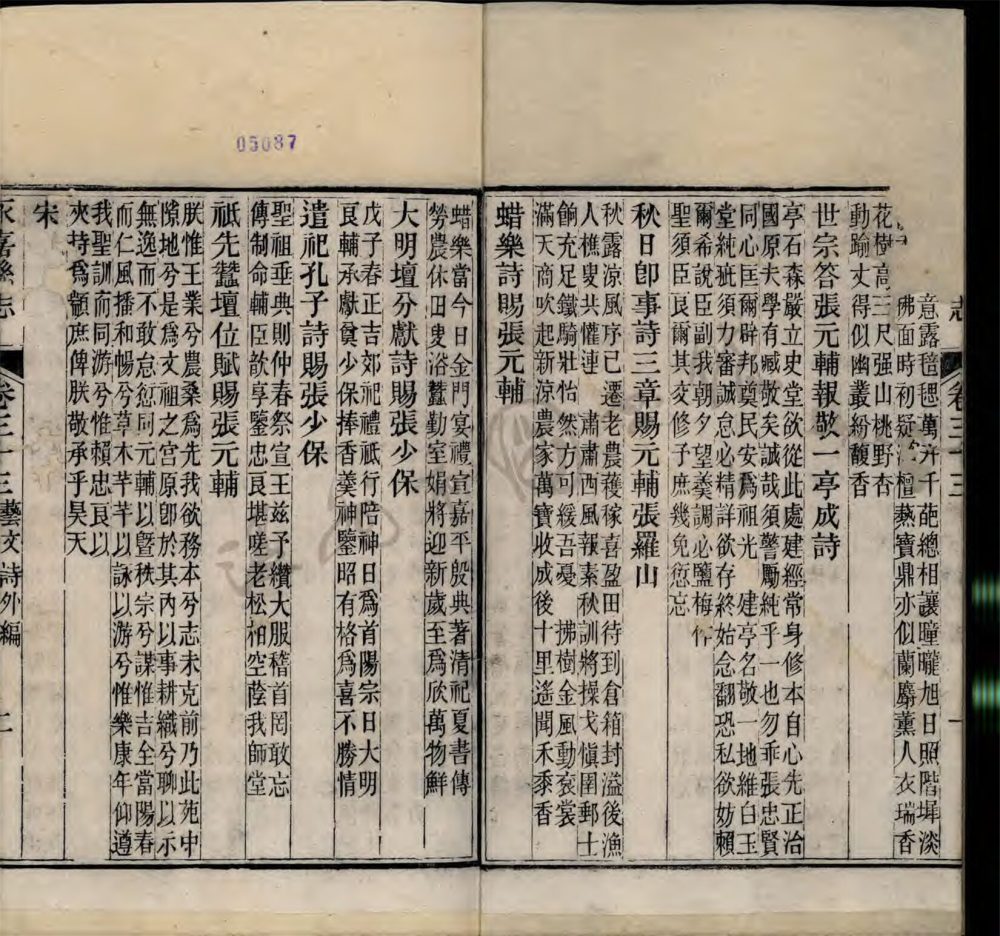 志
卷三十三
一
意露氊毸萬卉千葩總相讓曈曨旭日照階墀淡
佛面時初疑 檀爇寶鼎亦似蘭麝薰人衣瑞香
花樹高三尺强山桃野杏
動踰丈得似幽叢紛馥香
世宗答張元輔報敬一亭成詩
亭石森嚴立史堂欲從此處建經常身修本自心先正治
國原夫學有臧敬矣誠哉須警勵純乎一也勿乖張忠賢
同心匡爾辟邦奠民安爲祖光 建亭名敬一地維白玉
堂純疵須力審誠怠必精詳欲存終始念翻恐私欲妨賴
爾希說臣副我朝夕望羹調必鹽梅作
聖須臣良爾其交修子庶幾免愆忘
秋日卽事詩三章賜元輔張羅山
秋露涼風序已遷老農穫稼喜盈田待到倉箱封溢後漁
人樵叟共懽連 肅肅西風報素秋訓將操戈愼圉郵士
餉充足鐵騎壯怡然方可緩吾憂 拂樹金風動衮裳
滿天商吹起新涼農家萬寶收成後十里遙聞禾黍香
蜡樂詩賜張元輔
蜡樂當今日金門宴禮宣嘉平殷典著清祀夏書傳
勞農休田叟浴蠶勤室娟將迎新歲至爲欣萬物鮮
大明壇分獻詩賜張少保
戊子春正吉郊祀禮祇行陪神日爲首陽宗日大明
良輔承獻奠少保捧香羹神鑒昭有格爲喜不勝情
遣祀孔子詩賜張少保
聖祖垂典則仲春祭宣王兹予纘大服稽首罔敢忘
傳制命輔臣歆享鑒忠良堪嗟老松柏空蔭我師堂
祇先蠶壇位賦賜張元輔
朕惟王業兮農桑爲先我欲務本兮志未克前乃此苑中
隙地兮是爲文祖之宮原卽於其內以事耕織兮聊以示
無逸而不敢怠愆同元輔以曁秩宗兮謀惟吉全當陽春
而仁風播和暢兮草木芊芊以詠以游兮惟樂康年仰遵
我聖訓而同游兮惟賴忠良以
夾持爲顓庶俾朕敬承乎昊天
宋
永嘉縣志
卷三十三藝文 詩外編
二
05087